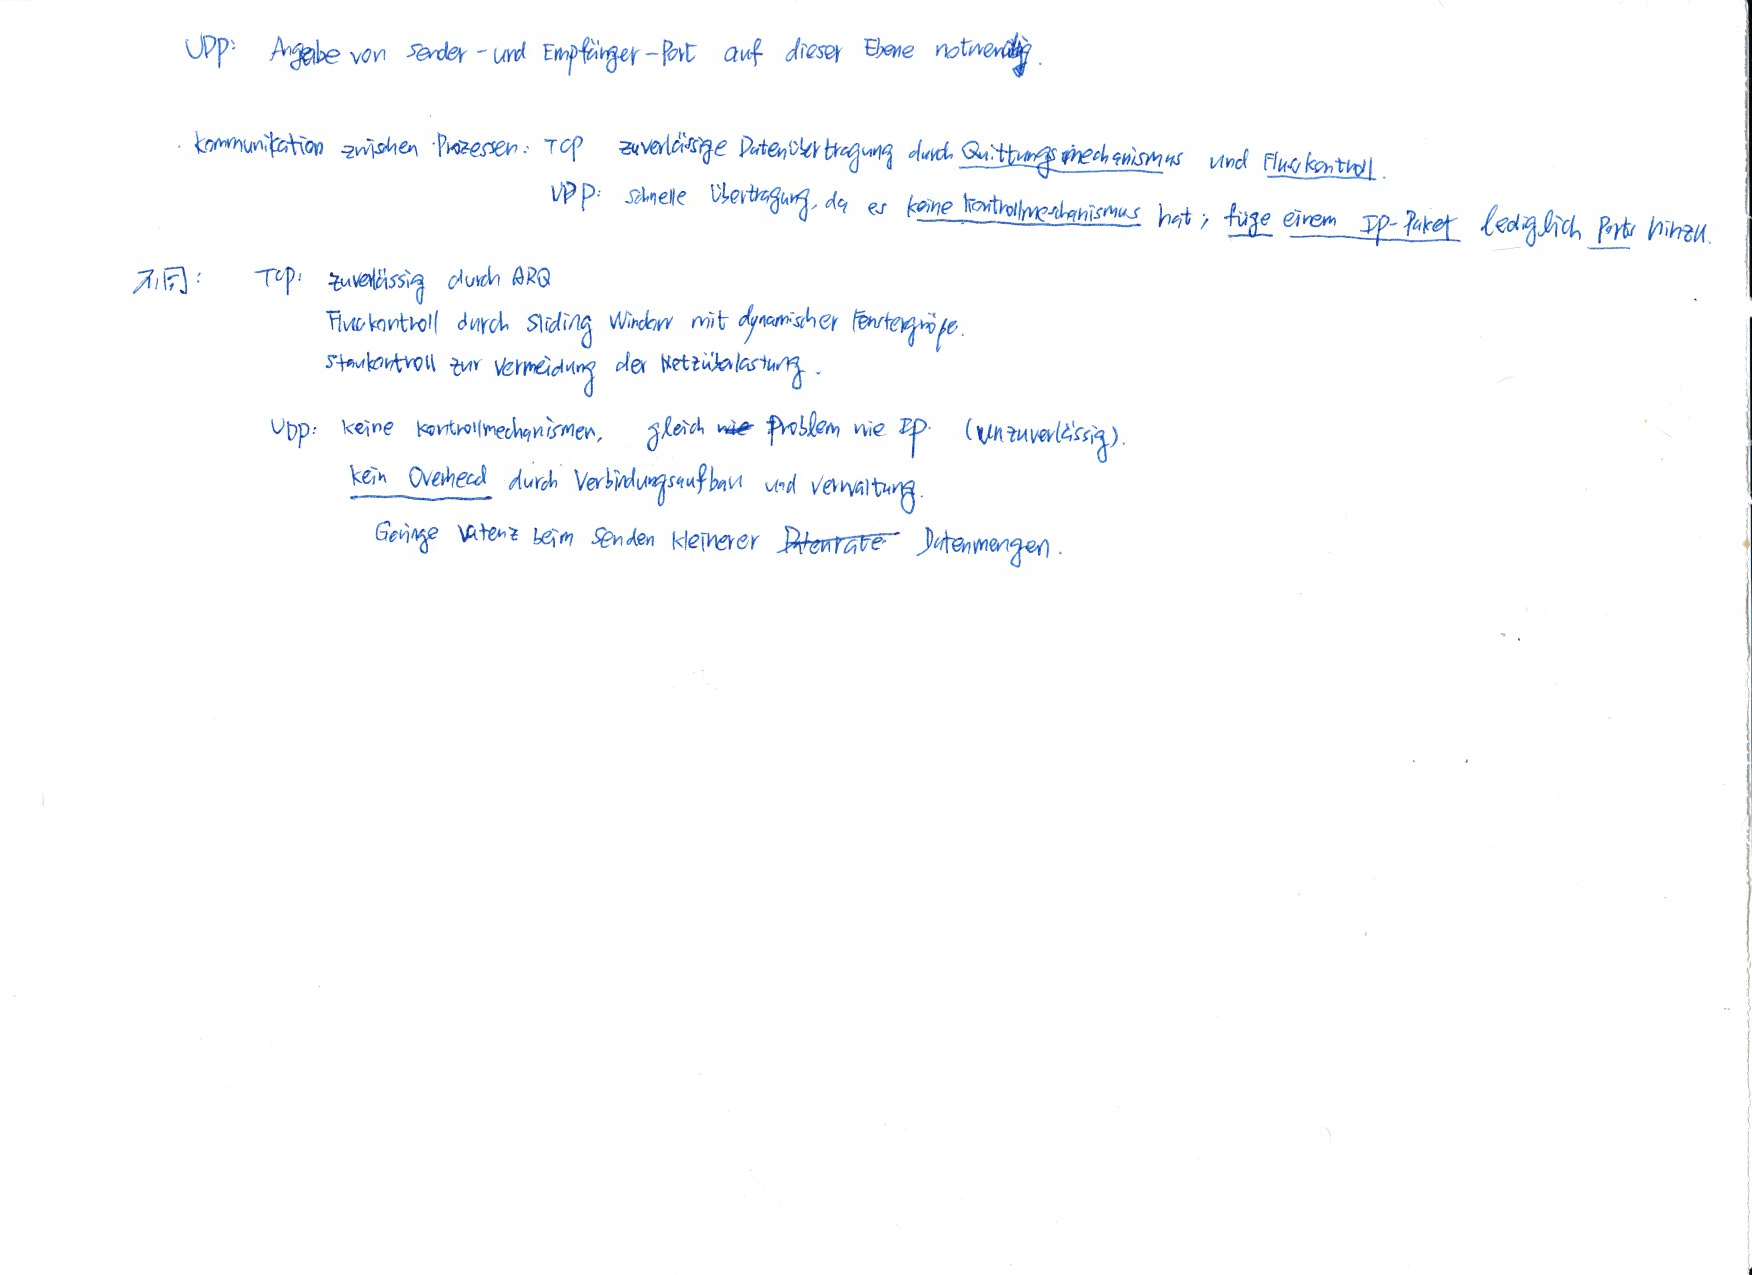 UDP: Angabe von Sender-und Empfänger-Port auf dieser Ebene notwendig.
· Kommunikation zwischen Prozessen: TCP zuverlässige Datenübertragung durch Quittungsmechanismus und Flusskontroll.
UDP: schnelle Übertragung, da es keine Kontrollmechanismus hat; füge einem IP-Paket lediglich Ports hinzu.
不同: TCP: zuverlässig durch ARQ
Flusskontroll durch Sliding Window mit dynamischer Fenstergröße.
Staukontroll zur Vermeidung der Netzüberlastung.
UDP: keine Kontrollmechanismen, gleich wie Problem wie IP. (unzuverlässig).
kein Overhead durch Verbindungsaufbau und Verwaltung.
Geringe Latenz beim Senden kleinerer Datenrate Datenmengen.